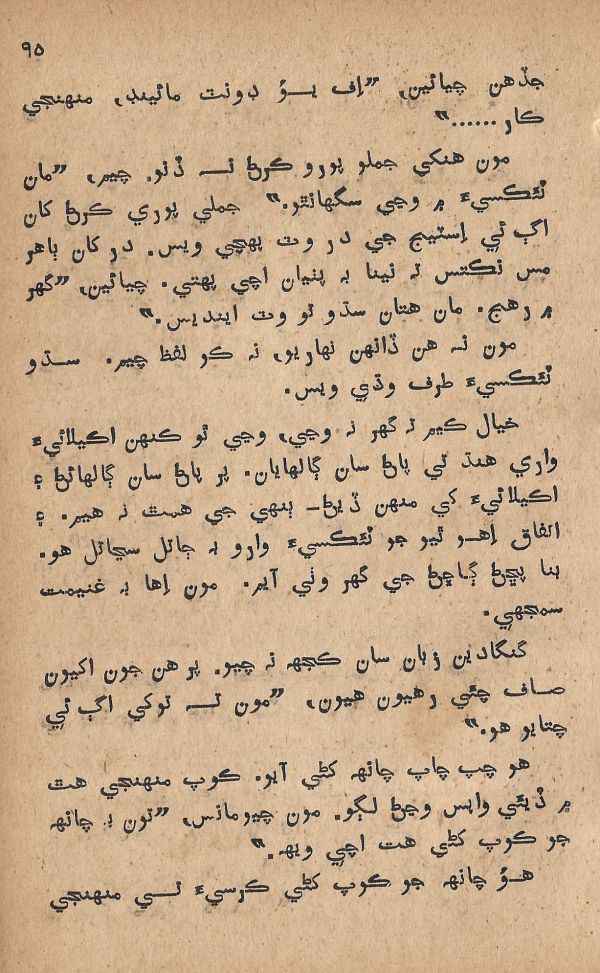 ٩٥
جڏهن چيائين، ”اِف يـو ڊونٽ مائينڊ، منهنجي
ڪار......“
مون هنکي جملو پورو ڪرڻ نـہ ڏنو. چيم، ”مان
ٽئڪسيءَ ۾ وڃي سگهانٿو.“ جملي پوري ڪرڻ کان
اڳ ئي اِسٽيج جي در وٽ پهچي ويس. در کان ٻاهر
مس نڪتس تہ نينا بہ پٺيان اچي پهتي. چيائين، ”گهر
۾ رهج. مان هتان سڌو تو وٽ اينديس.“
مون نـہ هن ڏانهن نهاريو، نہ ڪو لفظ چيم. سـڌو
ٽئڪسيءَ طرف وڌي ويس.
خيال ڪيم تہ گهر نہ وڃي، وڃي ٿو ڪنهن اڪيلائيءَ
واري هنڌ تي پاڻ سان ڳالهايان. پر پاڻ سان ڳالهائڻ ۽
اڪيلائيءَ کي منهن ڏيڻ— ٻنهي جي همٿ نہ هيم. ۽
اتفاق اِهـو ٿيو جو ٽئڪسيءَ وارو بہ ڄاتل سڃاتل هو.
بنا پڇڻ ڳاڇڻ جي گهر وٺي آيم. مون اِها بہ غنيمت
سمجهي.
گنگادين زبان سان ڪجهہ نہ چيو. پر هن جون اکيون
صـاف چئي رهيون هيون، ”مون تـہ توکي اڳ ئي
چتايو هو.“
هو چپ چاپ چانهہ کڻي آيو. ڪوپ منهنجي هٿ
۾ ڏيئي واپس وڃڻ لڳو. مون چيومانس، ”تون بہ چانهہ
جو ڪوپ کڻي هت اچي ويهہ.“
هـو چانهہ جو ڪوپ کڻي ڪرسيءَ تـي منهنجي